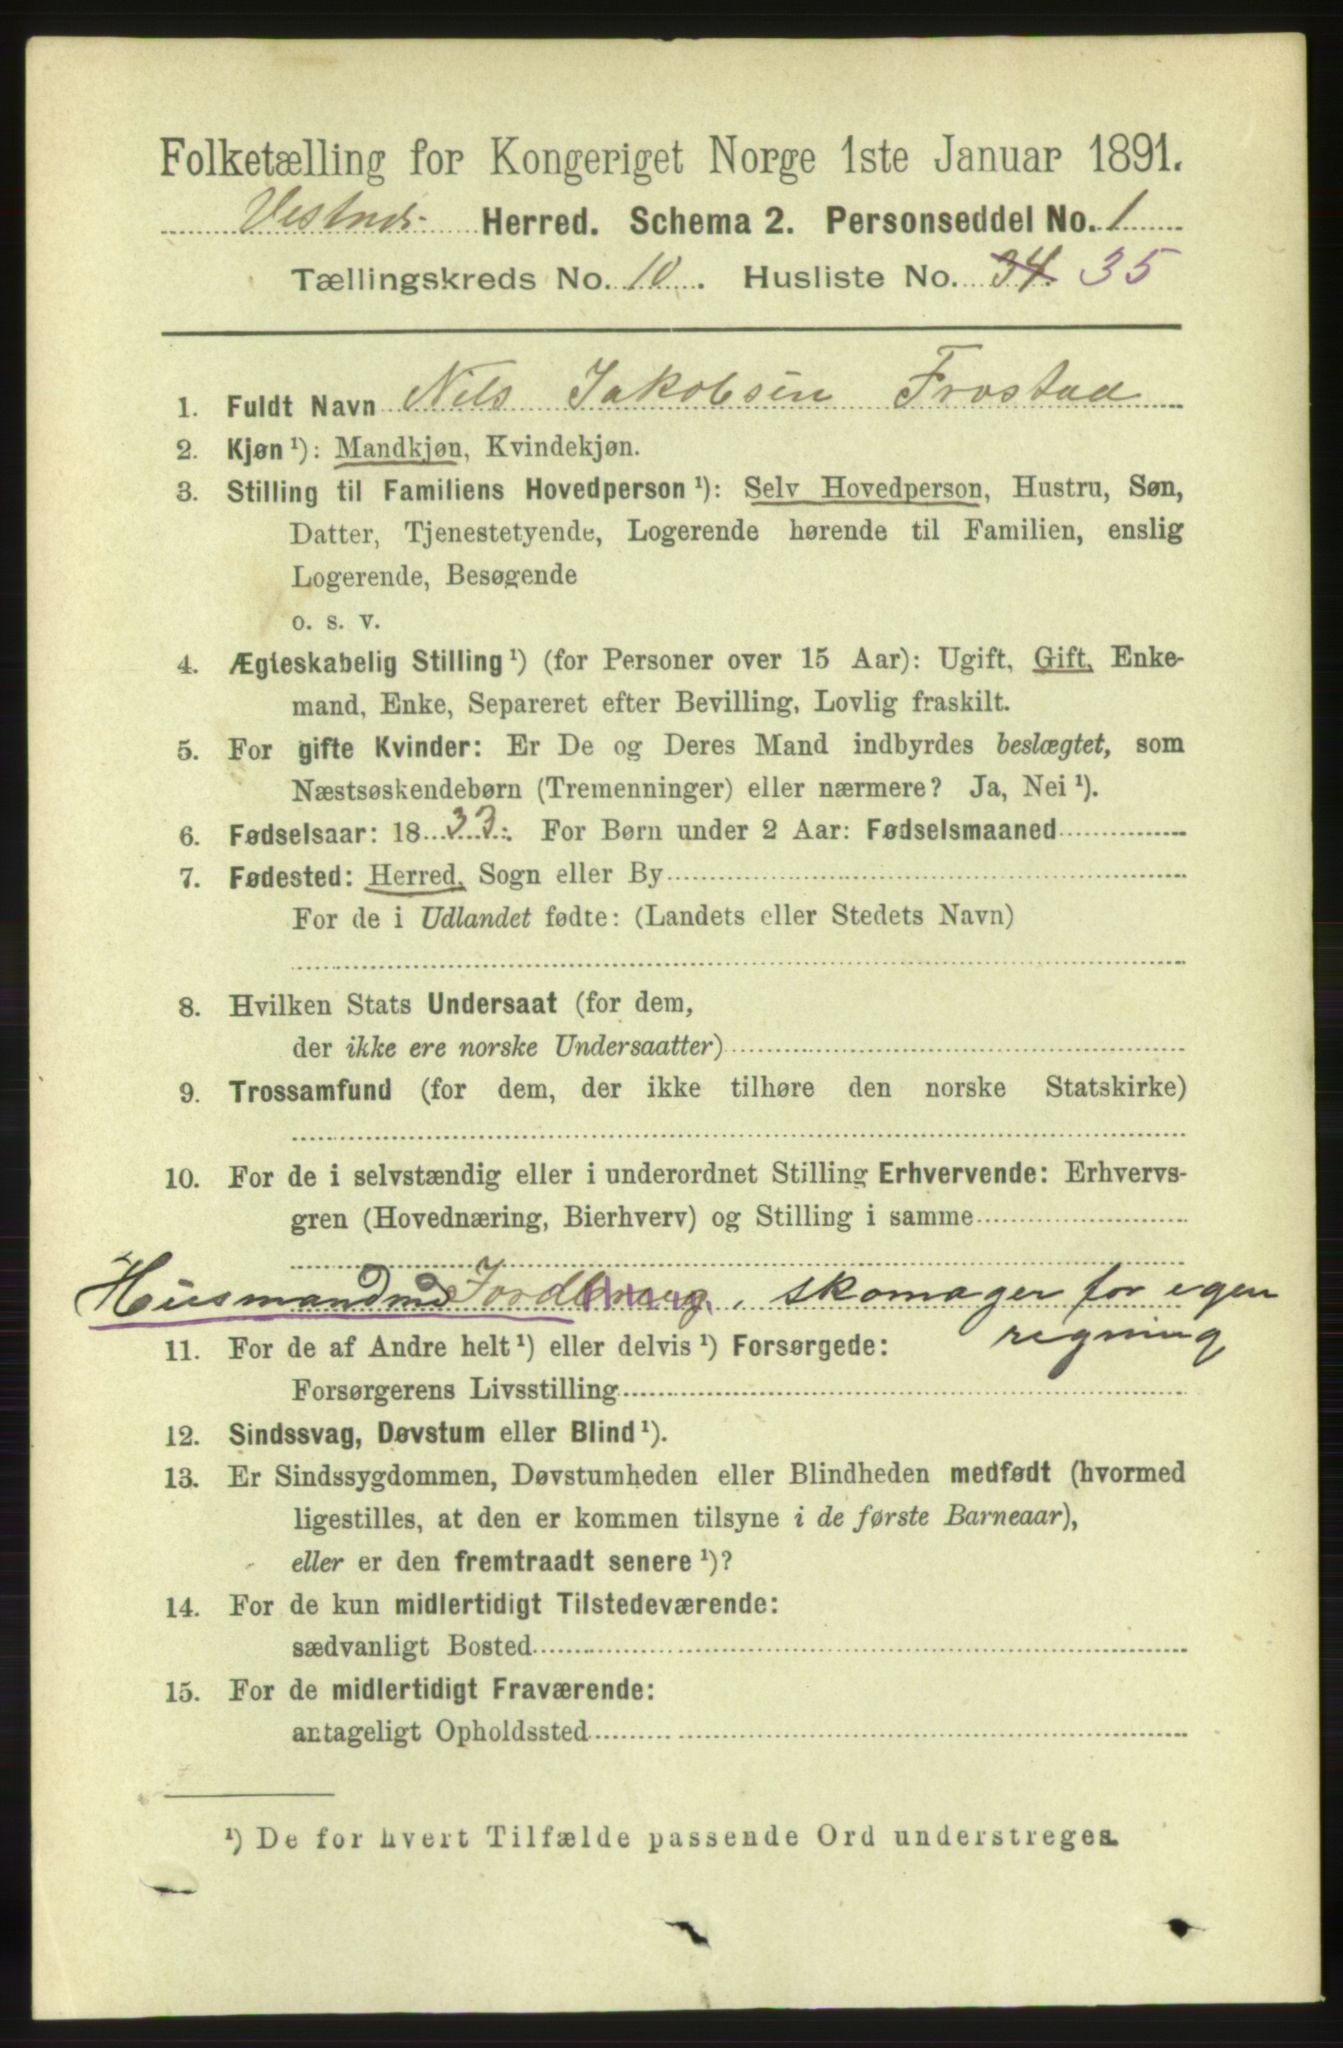 Folketælling for Kongeriget Norge 1ste Januar 1891.
Vestnes Herred. Schema 2. Personseddel No. 1
Tællingskreds No. 10. Husliste No. 34. 35
1. Fuldt Navn Nils Jakobsen Frostad
2. Kjøn ¹): Mandkjøn, Kvindekjøn.
3. Stilling til Familiens Hovedperson ¹): Selv Hovedperson, Hustru, Søn,
Datter, Tjenestetyende, Logerende hørende til Familien, enslig
Logerende, Besøgende
o. s. v.
4. Ægteskabelig Stilling ¹) (for Personer over 15 Aar): Ugift, Gift, Enke-
mand, Enke, Separeret efter Bevilling, Lovlig fraskilt.
5. For gifte Kvinder: Er De og Deres Mand indbyrdes beslægtet, som
Næstsøskendebørn (Tremenninger) eller nærmere? Ja, Nei ¹).
6. Fødselsaar: 1833. For Børn under 2 Aar: Fødselsmaaned
7. Fødested: Herred, Sogn eller By
For de i Udlandet fødte: (Landets eller Stedets Navn)
8. Hvilken Stats Undersaat (for dem,
der ikke ere norske Undersaatter)
9. Trossamfund (for dem, der ikke tilhøre den norske Statskirke)
10. For de i selvstændig eller i underordnet Stilling Erhvervende: Erhvervs-
gren (Hovednæring, Bierhverv) og Stilling i samme
Husmand med Jordbrug, skomager for egen
regning
11. For de af Andre helt ¹) eller delvis ¹) Forsørgede:
Forsørgerens Livsstilling
12. Sindssvag, Døvstum eller Blind ¹).
13. Er Sindssygdommen, Døvstumheden eller Blindheden medfødt (hvormed
ligestilles, at den er kommen tilsyne i de første Barneaar),
eller er den fremtraadt senere ¹)?
14. For de kun midlertidigt Tilstedeværende:
sædvanligt Bosted
15. For de midlertidigt Fraværende:
antageligt Opholdssted
¹) De for hvert Tilfælde passende Ord understreges.